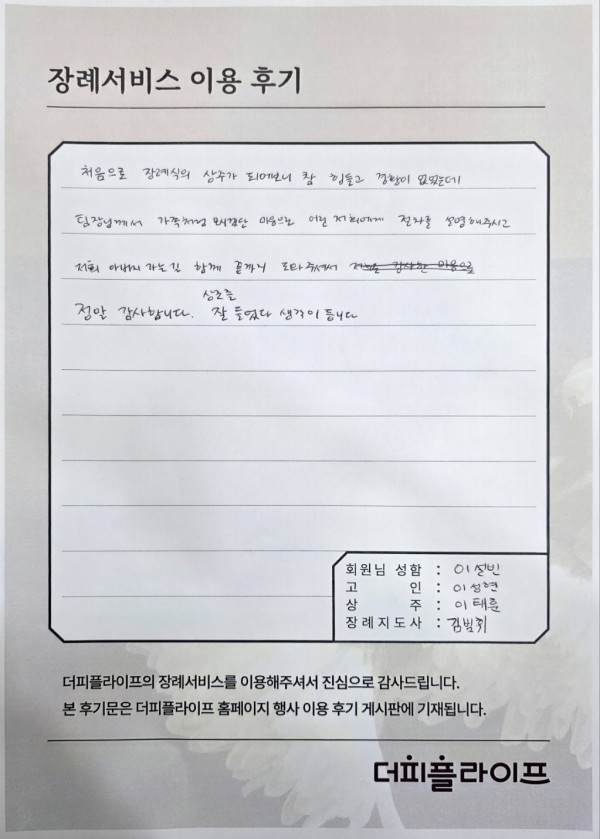 장례서비스 이용 후기
처음으로 장례식의 상주가 되어보니 참 힘들고 경황이 없었는데
팀장님께서 가족처럼 마음으로 어린 저희에게 절차를 설명해주시고
저희 아버지 가는길 함께 끝까지 도와주셔서 감사한 마음으로
상조를
정말 감사합니다. 잘 들었다 생각이 듭니다
회원님 성함 : 이설빈
고 인 : 이성현
상 주 : 이태훈
장례지도사 : 김범휘
더피플라이프의 장례서비스를 이용해주셔서 진심으로 감사드립니다.
본 후기문은 더피플라이프 홈페이지 행사 이용 후기 게시판에 기재됩니다.
더피플라이프